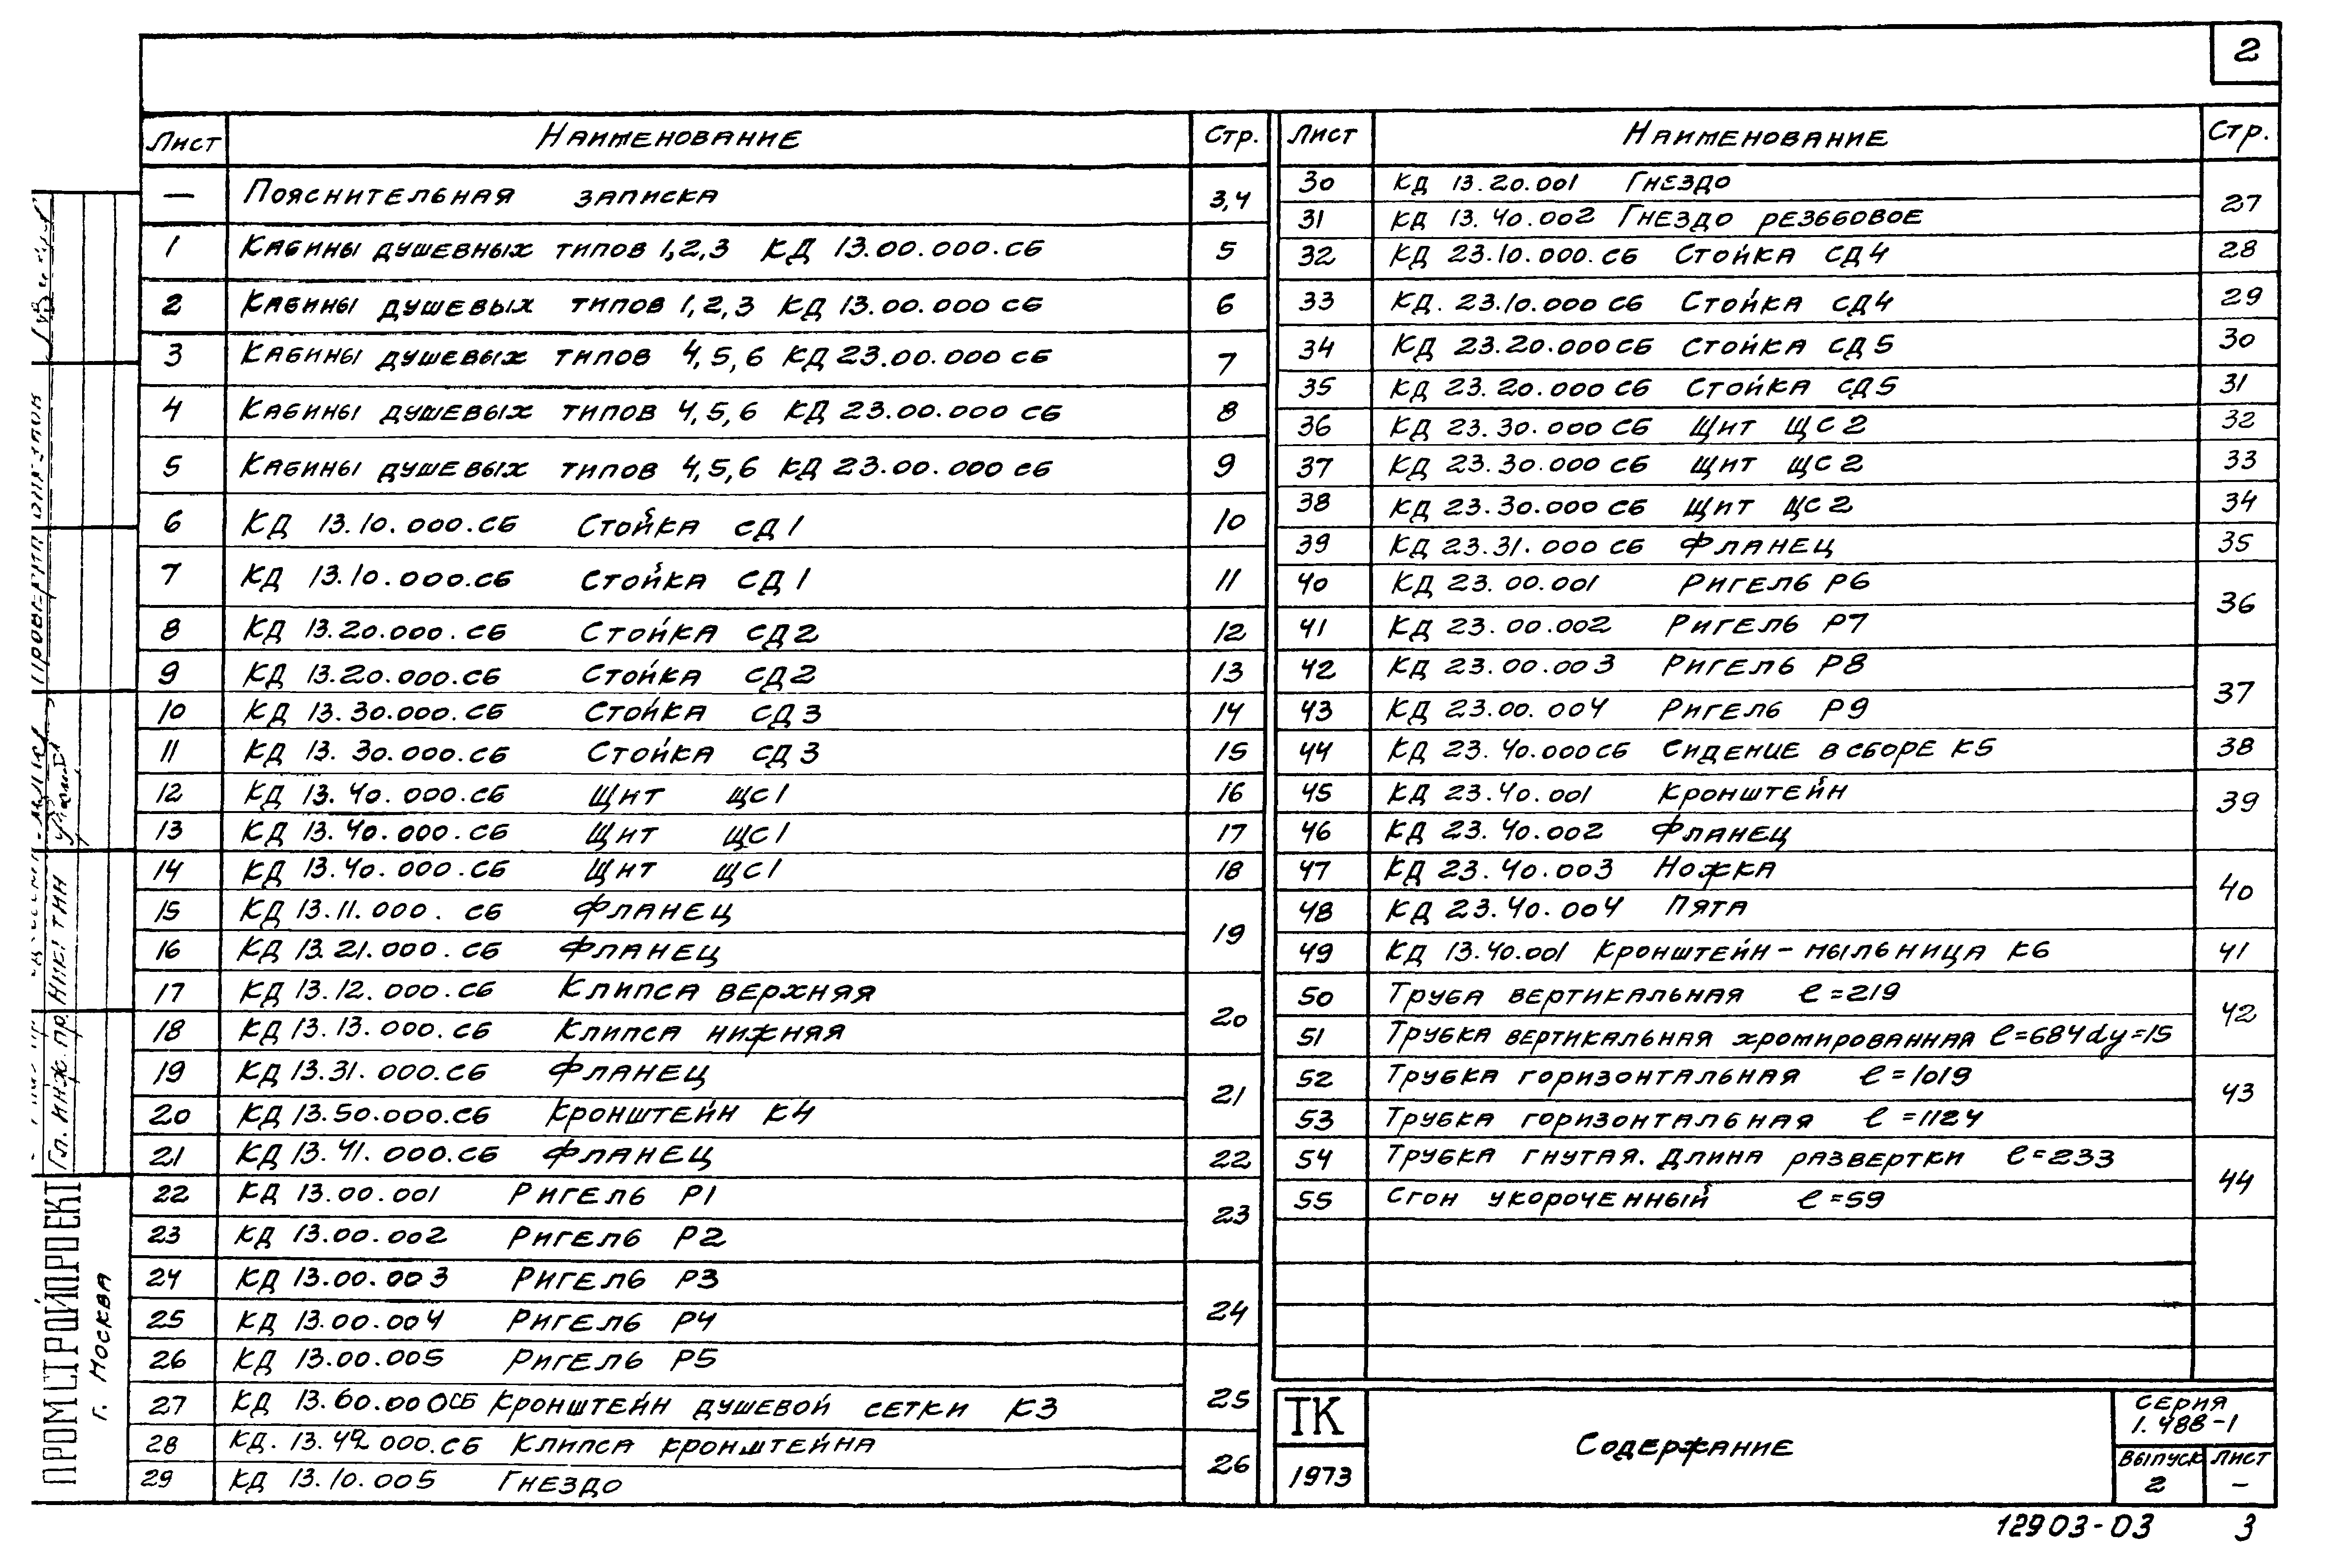 2
Лист Наименование Стр.
— Пояснительная записка 3,4
1 Кабины душевных типов 1,2,3 КД 13.00.000.сб 5
2 Кабины душевых типов 1,2,3 КД 13.00.000 сб 6
3 Кабины душевых типов 4,5,6 КД 23.00.000 сб 7
4 Кабины душевых типов 4,5,6 КД 23.00.000 сб 8
5 Кабины душевых типов 4,5,6 КД 23.00.000 сб 9
6 КД 13.10.000.сб Стойка СД1 10
7 КД 13.10.000.сб Стойка СД1 11
8 КД 13.20.000.сб Стойка СД2 12
9 КД 13.20.000.сб Стойка СД2 13
10 КД 13.30.000.сб Стойка СД3 14
11 КД 13.30.000.сб Стойка СД3 15
12 КД 13.40.000.сб Щит ЩС1 16
13 КД 13.40.000.сб Щит ЩС1 17
14 КД 13.40.000.сб Щит ЩС1 18
15 КД 13.11.000.сб Фланец 19
16 КД 13.21.000.сб Фланец
17 КД 13.12.000.сб Клипса верхняя 20
18 КД 13.13.000.сб Клипса нижняя
19 КД 13.31.000.сб Фланец 21
20 КД 13.50.000.сб Кронштейн К4
21 КД 13.41.000.сб Фланец 22
22 КД 13.00.001 Ригель Р1 23
23 КД 13.00.002 Ригель Р2
24 КД 13.00.003 Ригель Р3 24
25 КД 13.00.004 Ригель Р4
26 КД 13.00.005 Ригель Р5 25
27 КД 13.60.000сб Кронштейн душевой сетки К3
28 КД. 13.42 000.сб Клипса кронштейна 26
29 КД 13.10.005 Гнездо
Лист Наименование Стр.
30 КД 13.20.001 Гнездо 27
31 КД 13.40.002 Гнездо резьбовое
32 КД 23.10.000.сб Стойка СД4 28
33 КД. 23.10.000 сб Стойка СД4 29
34 КД 23.20.000сб Стойка СД5 30
35 КД 23.20.000 сб Стойка СД5 31
36 КД 23.30.000 сб Щит ЩС2 32
37 КД 23.30.000 сб Щит ЩС2 33
38 КД 23.30.000 сб Щит ЩС2 34
39 КД 23.31.000 сб Фланец 35
40 КД 23.00.001 Ригель Р6 36
41 КД 23.00.002 Ригель Р7
42 КД 23.00.003 Ригель Р8 37
43 КД 23.00.004 Ригель Р9
44 КД 23.40.000сб Сидение в сборе К5 38
45 КД 23.40.001 Кронштейн 39
46 КД 23.40.002 Фланец
47 КД 23.40.003 Ножка 40
48 КД 23.40.004 Пята
49 КД 13.40.001 Кронштейн-мыльница К6 41
50 Труба вертикальная ℓ=219 42
51 Трубка вертикальная хромированная ℓ=684 dу=15
52 Трубка горизонтальная ℓ=1019 43
53 Трубка горизонтальная ℓ=1124
54 Трубка гнутая. Длина развертки ℓ=233 44
55 Сгон укороченный ℓ=59
ТК
1973
Содержание
Серия
1.488-1
Выпуск Лист
2 —
12903-03 3
Гл. инж. пр. Никитин
ПРОМСТРОЙПРОЕКТ
г. Москва